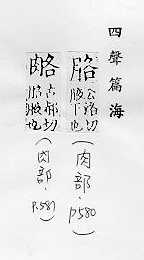 四聲篇海
胳
公洛切
腋下也
(肉部.p580)
胳腋也
(肉部.p581)